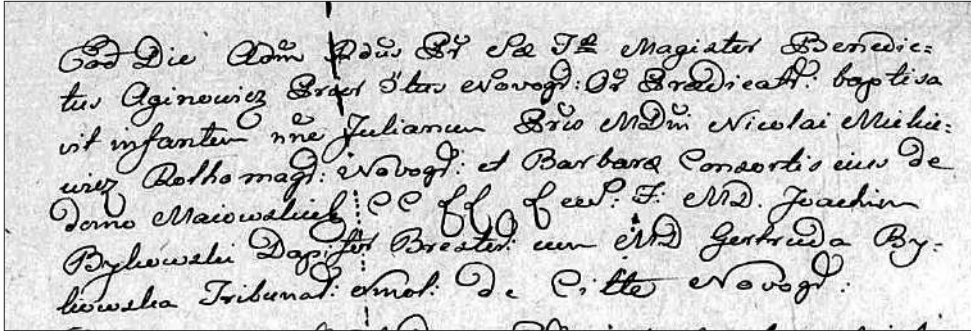 Ead Die Adm Rdus Pr Sæ Tæ Magister Benedic=
tus Aginowicz Prior Conv̄tus Novogr: Or: Prædicat: baptisa
vit infantem nne Julianum Gnro MD Nicolai Mickie=
wicz Rothomagr: Novogr: et Barbaræ Consortis eius de
domo Maiowskich CC LL feer. F: MD. Joachim
Bykowski Dapifer Brester: cum MD Gertruda By=
kowska Tribunal: emol: de C: tte Novogr: